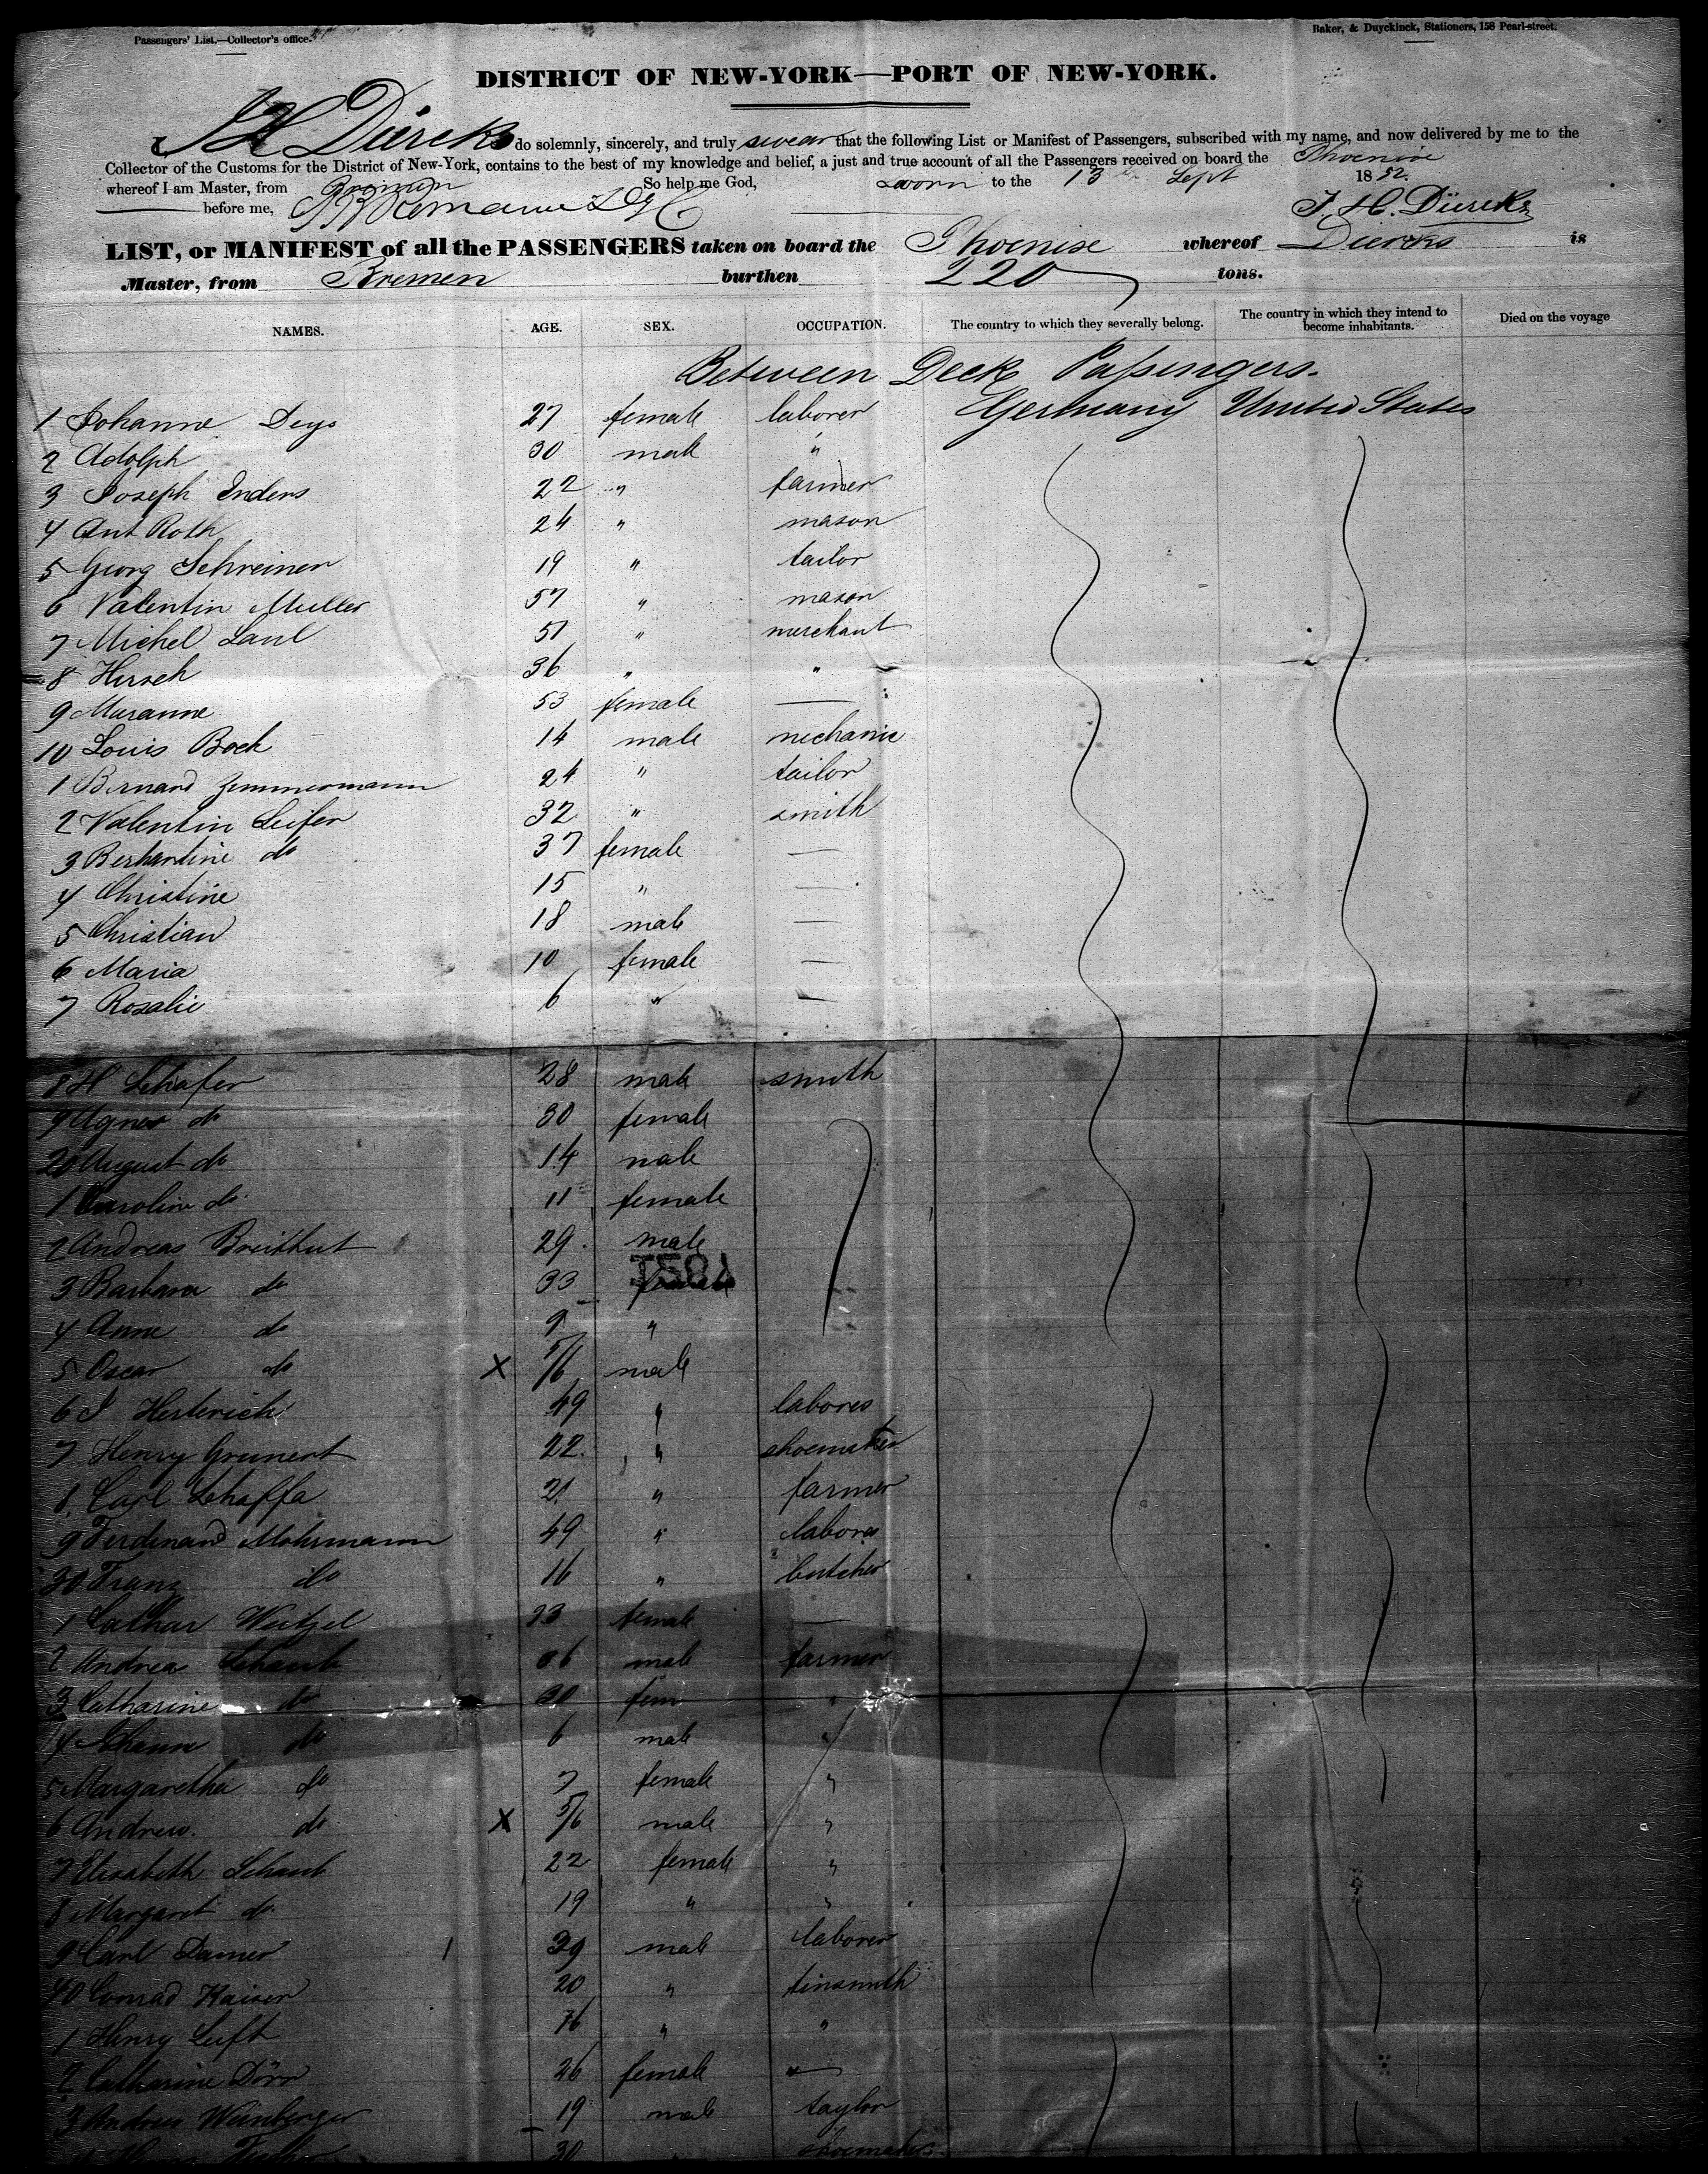 Passengers' List.—Collector's office.
Baker, & Duyckinck, Stationers, 158 Pearl-street.
DISTRICT OF NEW-YORK—PORT OF NEW-YORK.
I, J H Diercks do solemnly, sincerely, and truly swear that the following List or Manifest of Passengers, subscribed with my name, and now delivered by me to the
Collector of the Customs for the District of New-York, contains to the best of my knowledge and belief, a just and true account of all the Passengers received on board the Phoenix
whereof I am Master, from Bremen So help me God, sworn to the 13th Sept 1852.
before me, J. H. Diercks
LIST, or MANIFEST of all the PASSENGERS taken on board the Phoenix whereof Diercks is
Master, from Bremen burthen 220 tons.
NAMES. AGE. SEX. OCCUPATION. The country to which they severally belong. The country in which they intend to become inhabitants. Died on the voyage
Between Deck Passengers.
1 Johanne Deys 27 female laborer Germany United States
2 Adolph 30 male "
3 Joseph Enders 22 " farmer
4 Ant Roth 24 " mason
5 Georg Schreiner 19 " tailor
6 Valentin Muller 57 " mason
7 Michel Laul 51 " merchant
8 Hirsch 36 " "
9 Maranne 53 female —
10 Louis Bock 14 male mechanic
1 Bernard Zimmermann 24 " tailor
2 Valentin Leifer 32 " smith
3 Berhardine do 37 female —
4 Christine 15 " —
5 Christian 18 male —
6 Maria 10 female —
7 Rosalie 6 " —
8 H Schafer 28 male smith
9 Agnes do 30 female
20 August do 14 male
1 Carolin do 11 female
2 Andreas Breithut 29 male
3 Barbara do 33 female
4 Anne do 9 "
5 Oscar do X 5/6 male
6 J Hesterich 49 " laborer
7 Henry Grunert 22 " shoemaker
8 Carl Schaffa 21 " farmer
9 Ferdinand Mohrmann 49 " laborer
30 Franz do 16 " butcher
1 Cathar Weitzel 23 female —
2 Andrea Schaub 36 male farmer
3 Catharine do 30 fem "
4 do 6 male "
5 Margaretha do 7 female "
6 Andrew do X 5/6 male "
7 Elisabeth Schaub 22 female "
8 Margaret do 19 " "
9 Carl Damer 1 39 male laborer
40 Conrad Kaiser 20 " tinsmith
1 Henry Luft 16 " "
2 Catharine Dörr 26 female —
3 Andreas Weinberger 19 male taylor
30 shoemaker